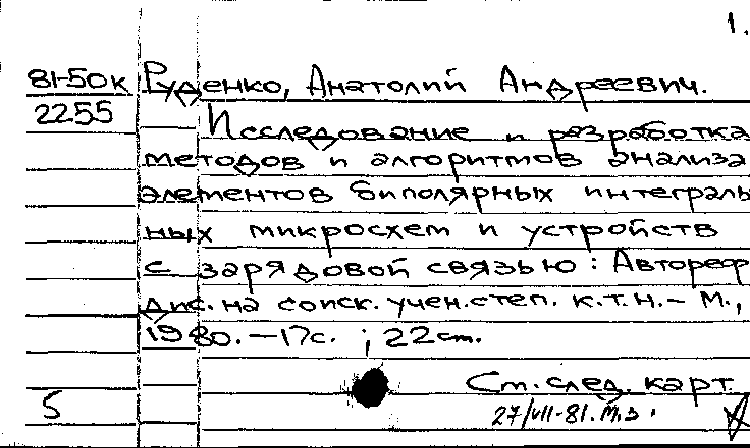 1.
81-50к Руденко, Анатолий Андреевич.
2255 Исследование и разработка
методов и алгоритмов анализа
элементов биполярных интеграль
ных микросхем и устройств
с зарядовой связью: Автореф
дис. на соиск. учен. степ. к.т.н. - М.,
1980. - 17с. ; 22 см.
См. след. карт.
5 27/VII-81.